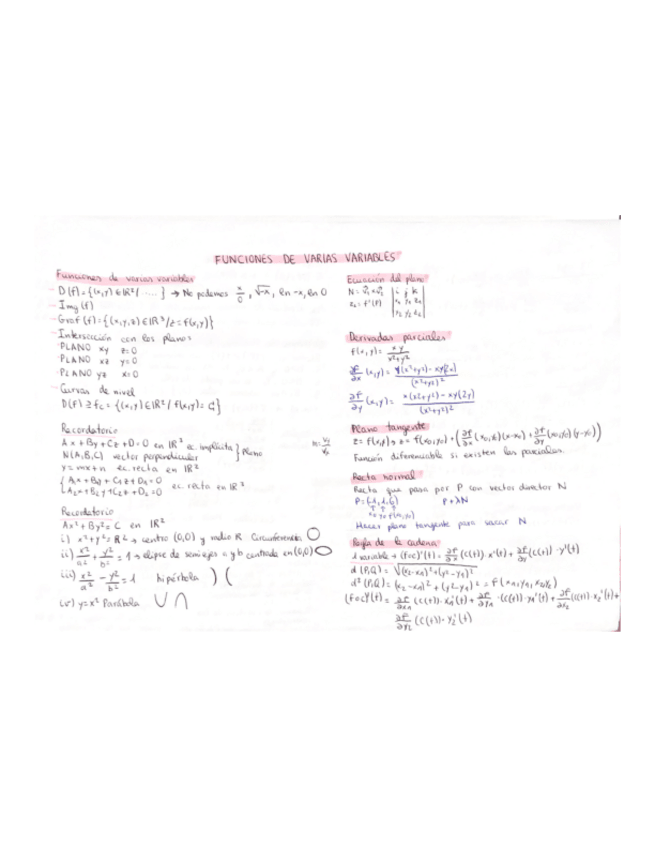 FUNCIONES DE VARIAS VARIABLES
Funciones de varias variables
- D(f)={(x,y)∈IR²/ .....} → No podemos x/0, √-x, ln -x, ln 0
- Img(f)
- Graf(f)={(x,y,z)∈IR³/z=f(x,y)}
- Intersección con los planos
·PLANO xy z=0
·PLANO xz y=0
·PLANO yz x=0
- Curvas de nivel
D(f)⊇fc={(x,y)∈IR²/ f(x,y)=C}
Recordatorio
Ax+By+Cz+D=0 en IR³ ec. implícita } Plano
N(A,B,C) vector perpendicular
y=mx+n ec. recta en IR²
{ Ax+By+C1z+D1=0
A2x+B2y+C2z+D2=0 ec. recta en IR³
Recordatorio
Ax²+By²=C en IR²
i) x²+y²=R² → centro (0,0) y radio R Circunferencia
ii) x²/a²+y²/b²=1 → elipse de semiejes a y b centrada en (0,0)
iii) x²/a²-y²/b²=1 hipérbola
iv) y=x² Parábola
Ecuación del plano
N=v1×v2 |i j k|
Derivadas parciales
f(x,y)= xy/x²+y²
∂f/∂x (x,y)= y(x²+y²)-xy(2x)/(x²+y²)²
∂f/∂y (x,y)= x(x²+y²)-xy(2y)/(x²+y²)²
Plano tangente
z=f(x,y)→z=f(x0,y0)+(∂f/∂x(x0,y0)(x-x0)+∂f/∂y(x0,y0)(y-y0))
Función diferenciable si existen las parciales.
Recta normal
Recta que pasa por P con vector director N
P+λN
Hacer plano tangente para sacar N
Regla de la cadena
1 variable → (f∘c)'(t)=∂f/∂x(c(t))·x'(t)+∂f/∂y(c(t))·y'(t)
d(P,Q)=√(x2-x1)²+(y2-y1)²
d²(P,Q)=(x2-x1)²+(y2-y1)²=f(x1,y1,x2,y2)
(f∘c)'(t)=∂f/∂x1(c(t))·x1'(t)+∂f/∂y1·(c(t))·y1'(t)+∂f/∂x2(c(t))·x2'(t)+
∂f/∂y2(c(t))·y2'(t)